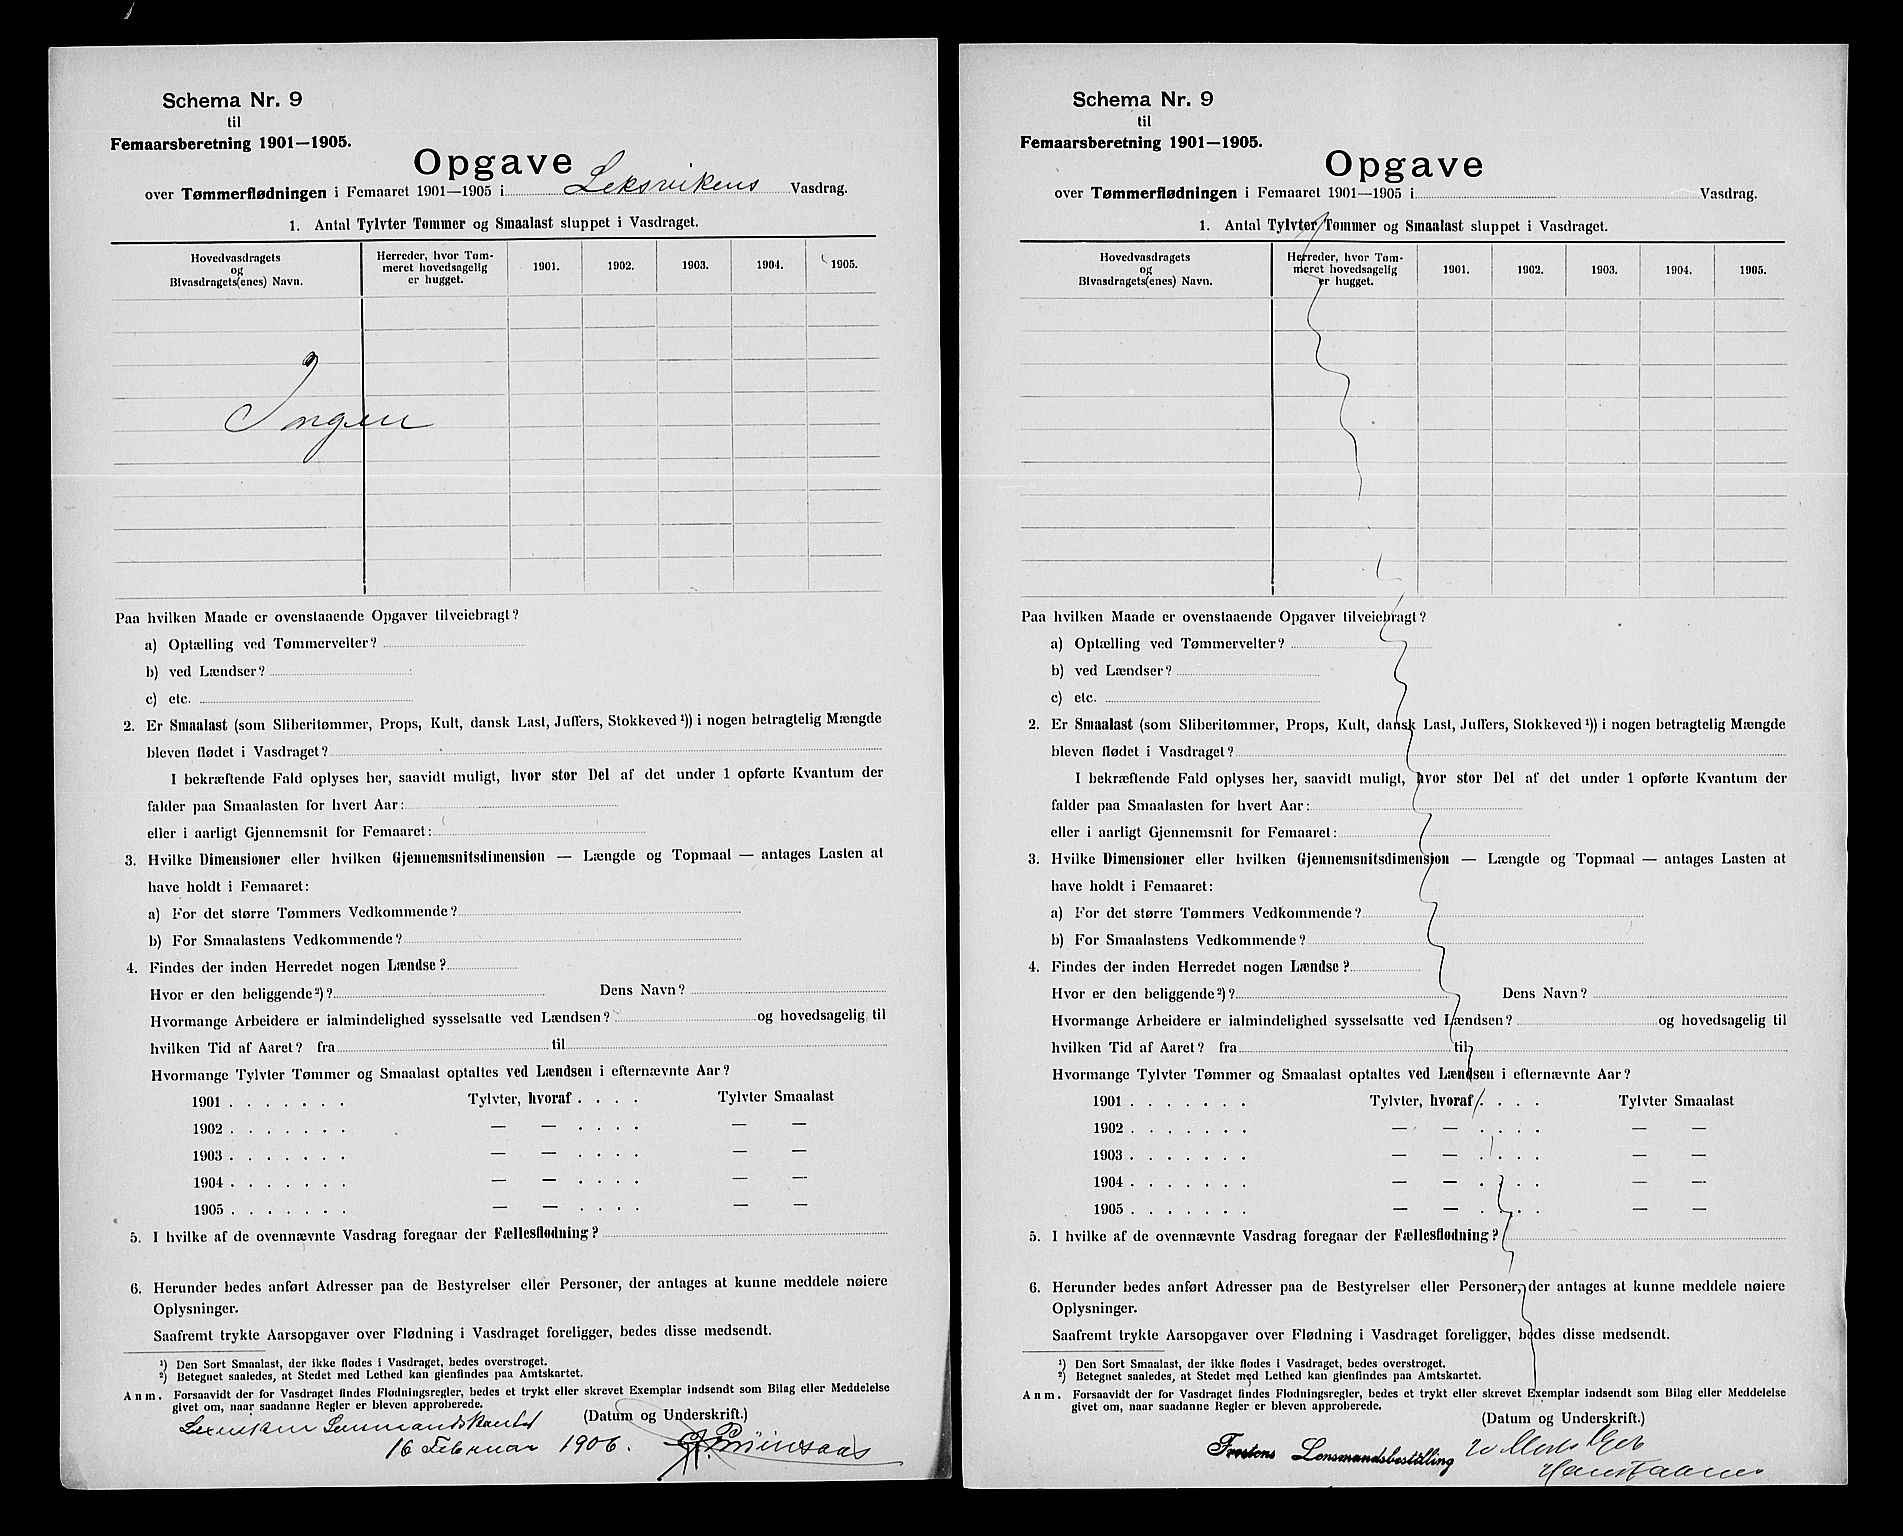 Schema Nr. 9
til
Femaarsberetning 1901—1905.
Opgave
over Tømmerflødningen i Femaaret 1901—1905 i Leksvikens Vasdrag.
1. Antal Tylvter Tømmer og Smaalast sluppet i Vasdraget.
Hovedvasdragets
og
Bivasdragets(enes) Navn.
Herreder, hvor Tøm-
meret hovedsagelig
er hugget.
1901. 1902. 1903. 1904. 1905.
Ingen
Paa hvilken Maade er ovenstaaende Opgaver tilveiebragt?
a) Optælling ved Tømmervelter?
b) ved Lændser?
c) etc.
2. Er Smaalast (som Sliberitømmer, Props, Kult, dansk Last, Juffers, Stokkeved ¹)) i nogen betragtelig Mængde
bleven flødet i Vasdraget?
I bekræftende Fald oplyses her, saavidt muligt, hvor stor Del af det under 1 opførte Kvantum der
falder paa Smaalasten for hvert Aar:
eller i aarligt Gjennemsnit for Femaaret:
3. Hvilke Dimensioner eller hvilken Gjennemsnitsdimension — Længde og Topmaal — antages Lasten at
have holdt i Femaaret:
a) For det større Tømmers Vedkommende?
b) For Smaalastens Vedkommende?
4. Findes der inden Herredet nogen Lændse?
Hvor er den beliggende ²)? Dens Navn?
Hvormange Arbeidere er ialmindelighed sysselsatte ved Lændsen? og hovedsagelig til
hvilken Tid af Aaret? fra til
Hvormange Tylvter Tømmer og Smaalast optaltes ved Lændsen i efternævnte Aar?
1901 . . . . . . . Tylvter, hvoraf . . . . Tylvter Smaalast
1902 . . . . . . . — — . . . . — —
1903 . . . . . . . — — . . . . — —
1904 . . . . . . . — — . . . . — —
1905 . . . . . . . — — . . . . — —
5. I hvilke af de ovennævnte Vasdrag foregaar der Fællesflødning?
6. Herunder bedes anført Adresser paa de Bestyrelser eller Personer, der antages at kunne meddele nøiere
Oplysninger.
Saafremt trykte Aarsopgaver over Flødning i Vasdraget foreligger, bedes disse medsendt.
¹) Den Sort Smaalast, der ikke flødes i Vasdraget, bedes overstrøget.
²) Betegnet saaledes, at Stedet med Lethed kan gienfindes paa Amtskartet.
Anm. Forsaavidt der for Vasdraget findes Flødningsregler, bedes et trykt eller skrevet Exemplar indsendt som Bilag eller Meddelelse
givet om, naar saadanne Regler er bleven approberede.
(Datum og Underskrift.)
16 Februar 1906.
Schema Nr. 9
til
Femaarsberetning 1901—1905.
Opgave
over Tømmerflødningen i Femaaret 1901—1905 i Vasdrag.
1. Antal Tylvter Tømmer og Smaalast sluppet i Vasdraget.
Hovedvasdragets
og
Bivasdragets(enes) Navn.
Herreder, hvor Tøm-
meret hovedsagelig
er hugget.
1901. 1902. 1903. 1904. 1905.
Paa hvilken Maade er ovenstaaende Opgaver tilveiebragt?
a) Optælling ved Tømmervelter?
b) ved Lændser?
c) etc.
2. Er Smaalast (som Sliberitømmer, Props, Kult, dansk Last, Juffers, Stokkeved ¹)) i nogen betragtelig Mængde
bleven flødet i Vasdraget?
I bekræftende Fald oplyses her, saavidt muligt, hvor stor Del af det under 1 opførte Kvantum der
falder paa Smaalasten for hvert Aar:
eller i aarligt Gjennemsnit for Femaaret:
3. Hvilke Dimensioner eller hvilken Gjennemsnitsdimension — Længde og Topmaal — antages Lasten at
have holdt i Femaaret:
a) For det større Tømmers Vedkommende?
b) For Smaalastens Vedkommende?
4. Findes der inden Herredet nogen Lændse?
Hvor er den beliggende ²)? Dens Navn?
Hvormange Arbeidere er ialmindelighed sysselsatte ved Lændsen? og hovedsagelig til
hvilken Tid af Aaret? fra til
Hvormange Tylvter Tømmer og Smaalast optaltes ved Lændsen i efternævnte Aar?
1901 . . . . . . . Tylvter, hvoraf . . . . Tylvter Smaalast
1902 . . . . . . . — — . . . . — —
1903 . . . . . . . — — . . . . — —
1904 . . . . . . . — — . . . . — —
1905 . . . . . . . — — . . . . — —
5. I hvilke af de ovennævnte Vasdrag foregaar der Fællesflødning?
6. Herunder bedes anført Adresser paa de Bestyrelser eller Personer, der antages at kunne meddele nøiere
Oplysninger.
Saafremt trykte Aarsopgaver over Flødning i Vasdraget foreligger, bedes disse medsendt.
¹) Den Sort Smaalast, der ikke flødes i Vasdraget, bedes overstrøget.
²) Betegnet saaledes, at Stedet med Lethed kan gienfindes paa Amtskartet.
Anm. Forsaavidt der for Vasdraget findes Flødningsregler, bedes et trykt eller skrevet Exemplar indsendt som Bilag eller Meddelelse
givet om, naar saadanne Regler er bleven approberede.
(Datum og Underskrift.)
Frostens Lensmandsbestilling